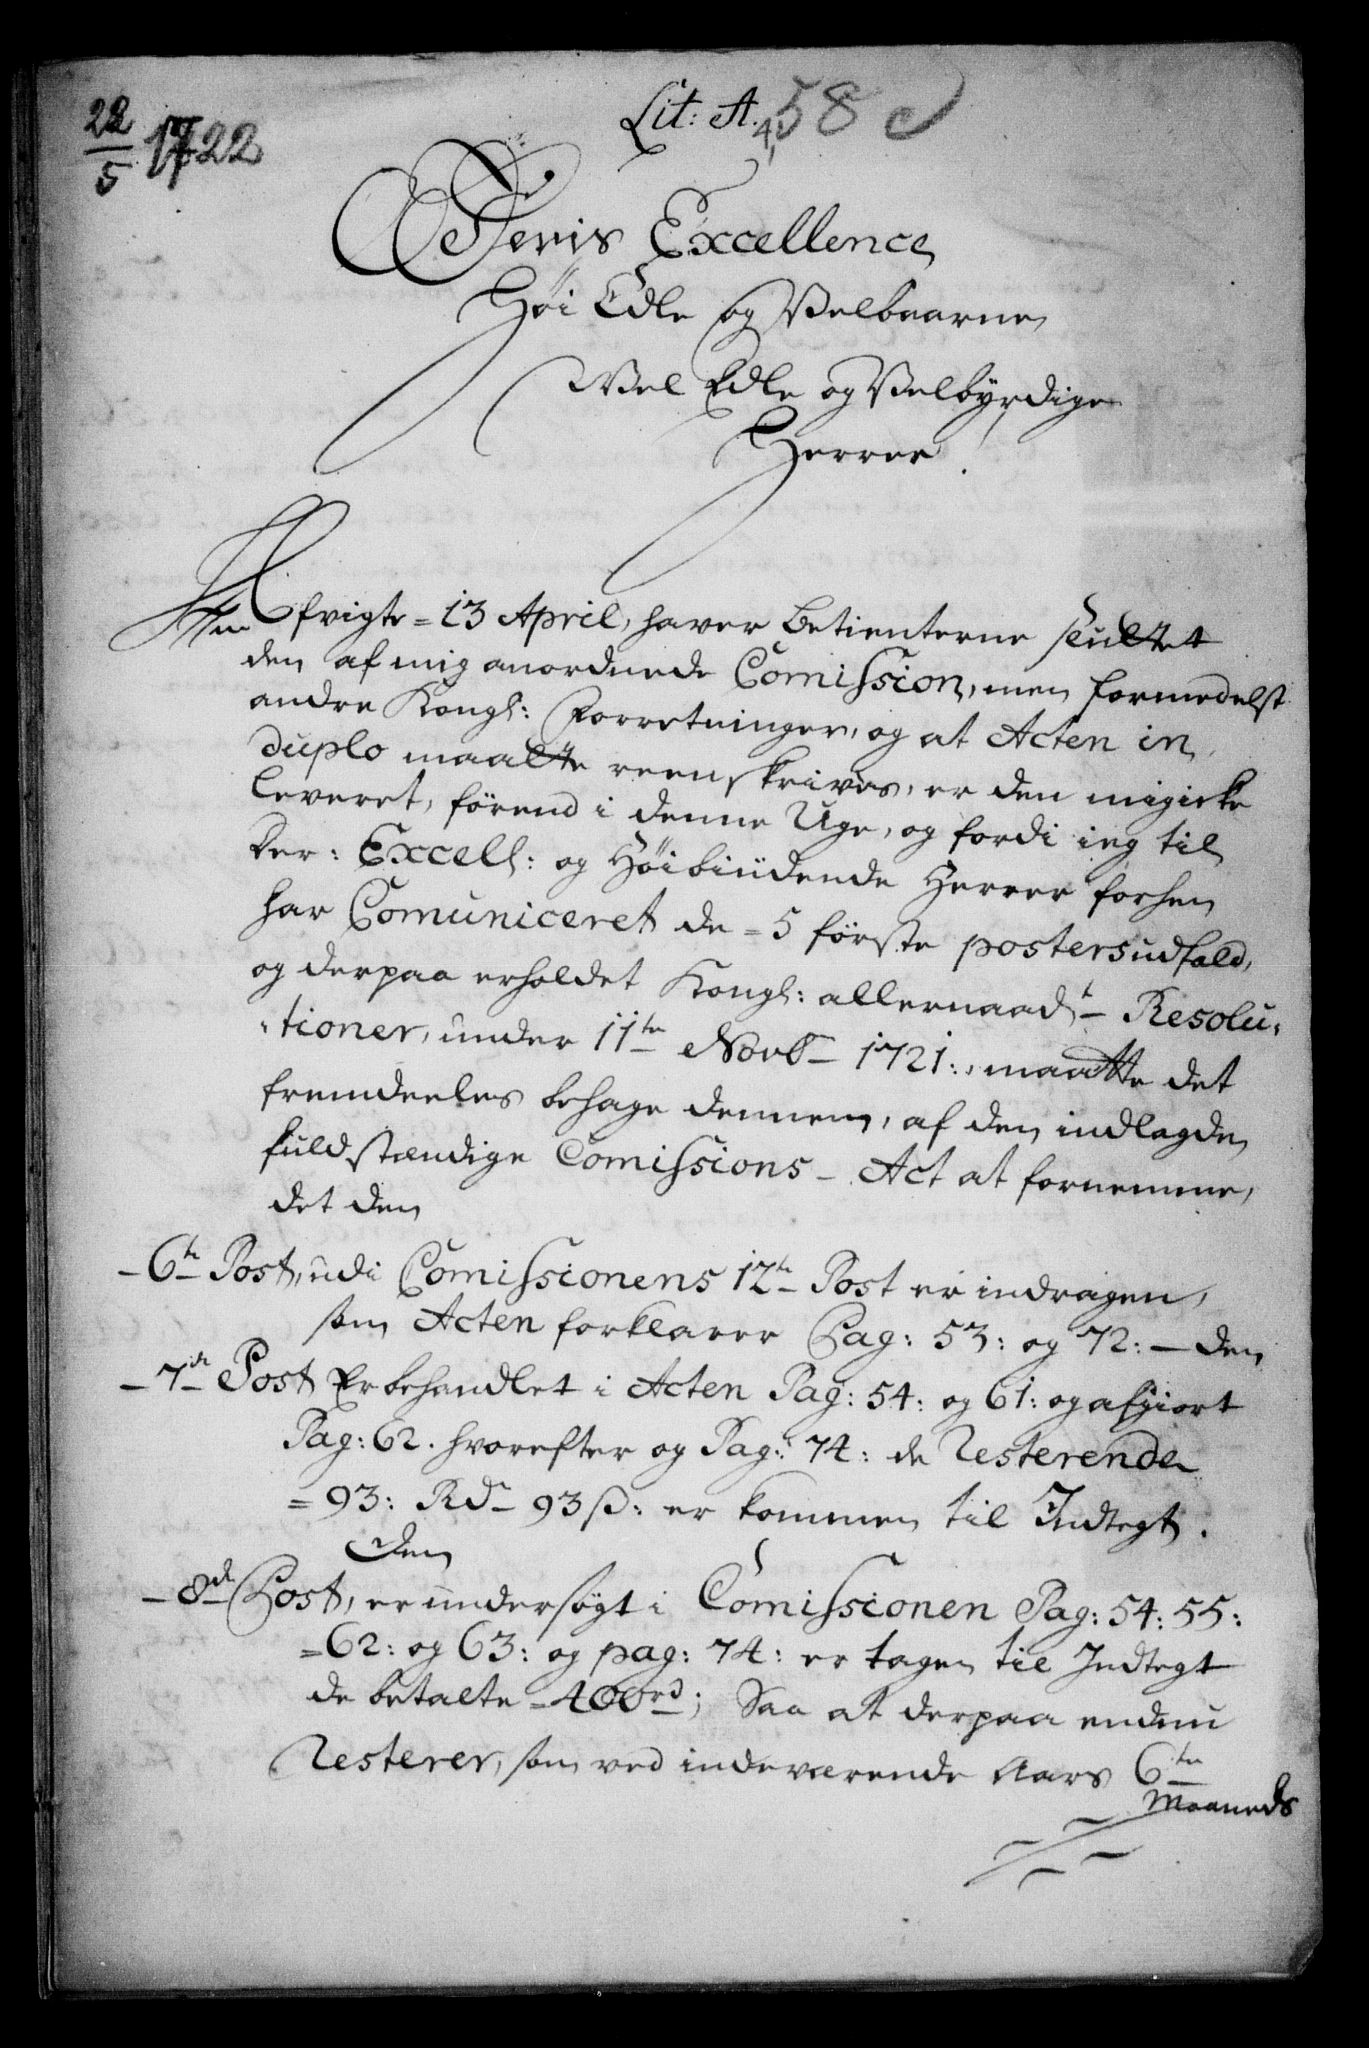 22/5 1722
Lit: A. 58 c
4,
Deris Excellence
Höi Edle og Velbaarne
Vel Edle og Velbyrdige
Herrer!
Afvigte = 13 April, haver betienterne sluttet
den af mig anordnede Comission, men formedelst
andre Kongl: Forretninger, og at Acten in
duplo maatte reenskrives, er den mig icke
leveret, förend i denne Uge, og fordi ieg til
Der: Excell: og Höibiüdende Herrer forhen
har Comuniceret de = 5 förste posters udfald,
og derpaa erholdet Kongl: allernaadt Resolu-
tioner, under 11te Novb 1721:, maatte det
fremdeeles behage dennem, af den indlagde
fuldstændige Comissions Act at fornemme,
det den
6te Post, udi Comissionens 12te Post er inddragen,
som Acten forklarer Pag: 53: og 72: den
7de Post Er behandlet i Acten Pag: 54: og 61: og afgiort
Pag: 62. hvorefter og Pag: 74: de Resterende
= 93: Rdr 93 ß: er kommen til Indtegt.
Den
8de Post, er undersögt i Comissionen Pag: 54: 55:
= 62: og 63: og pag: 74: er tagen til Indtegt
de betalte = 400 rd; Saa at derpaa endnu
Resterer, som ved indeværende Aars 6te
Maaneds